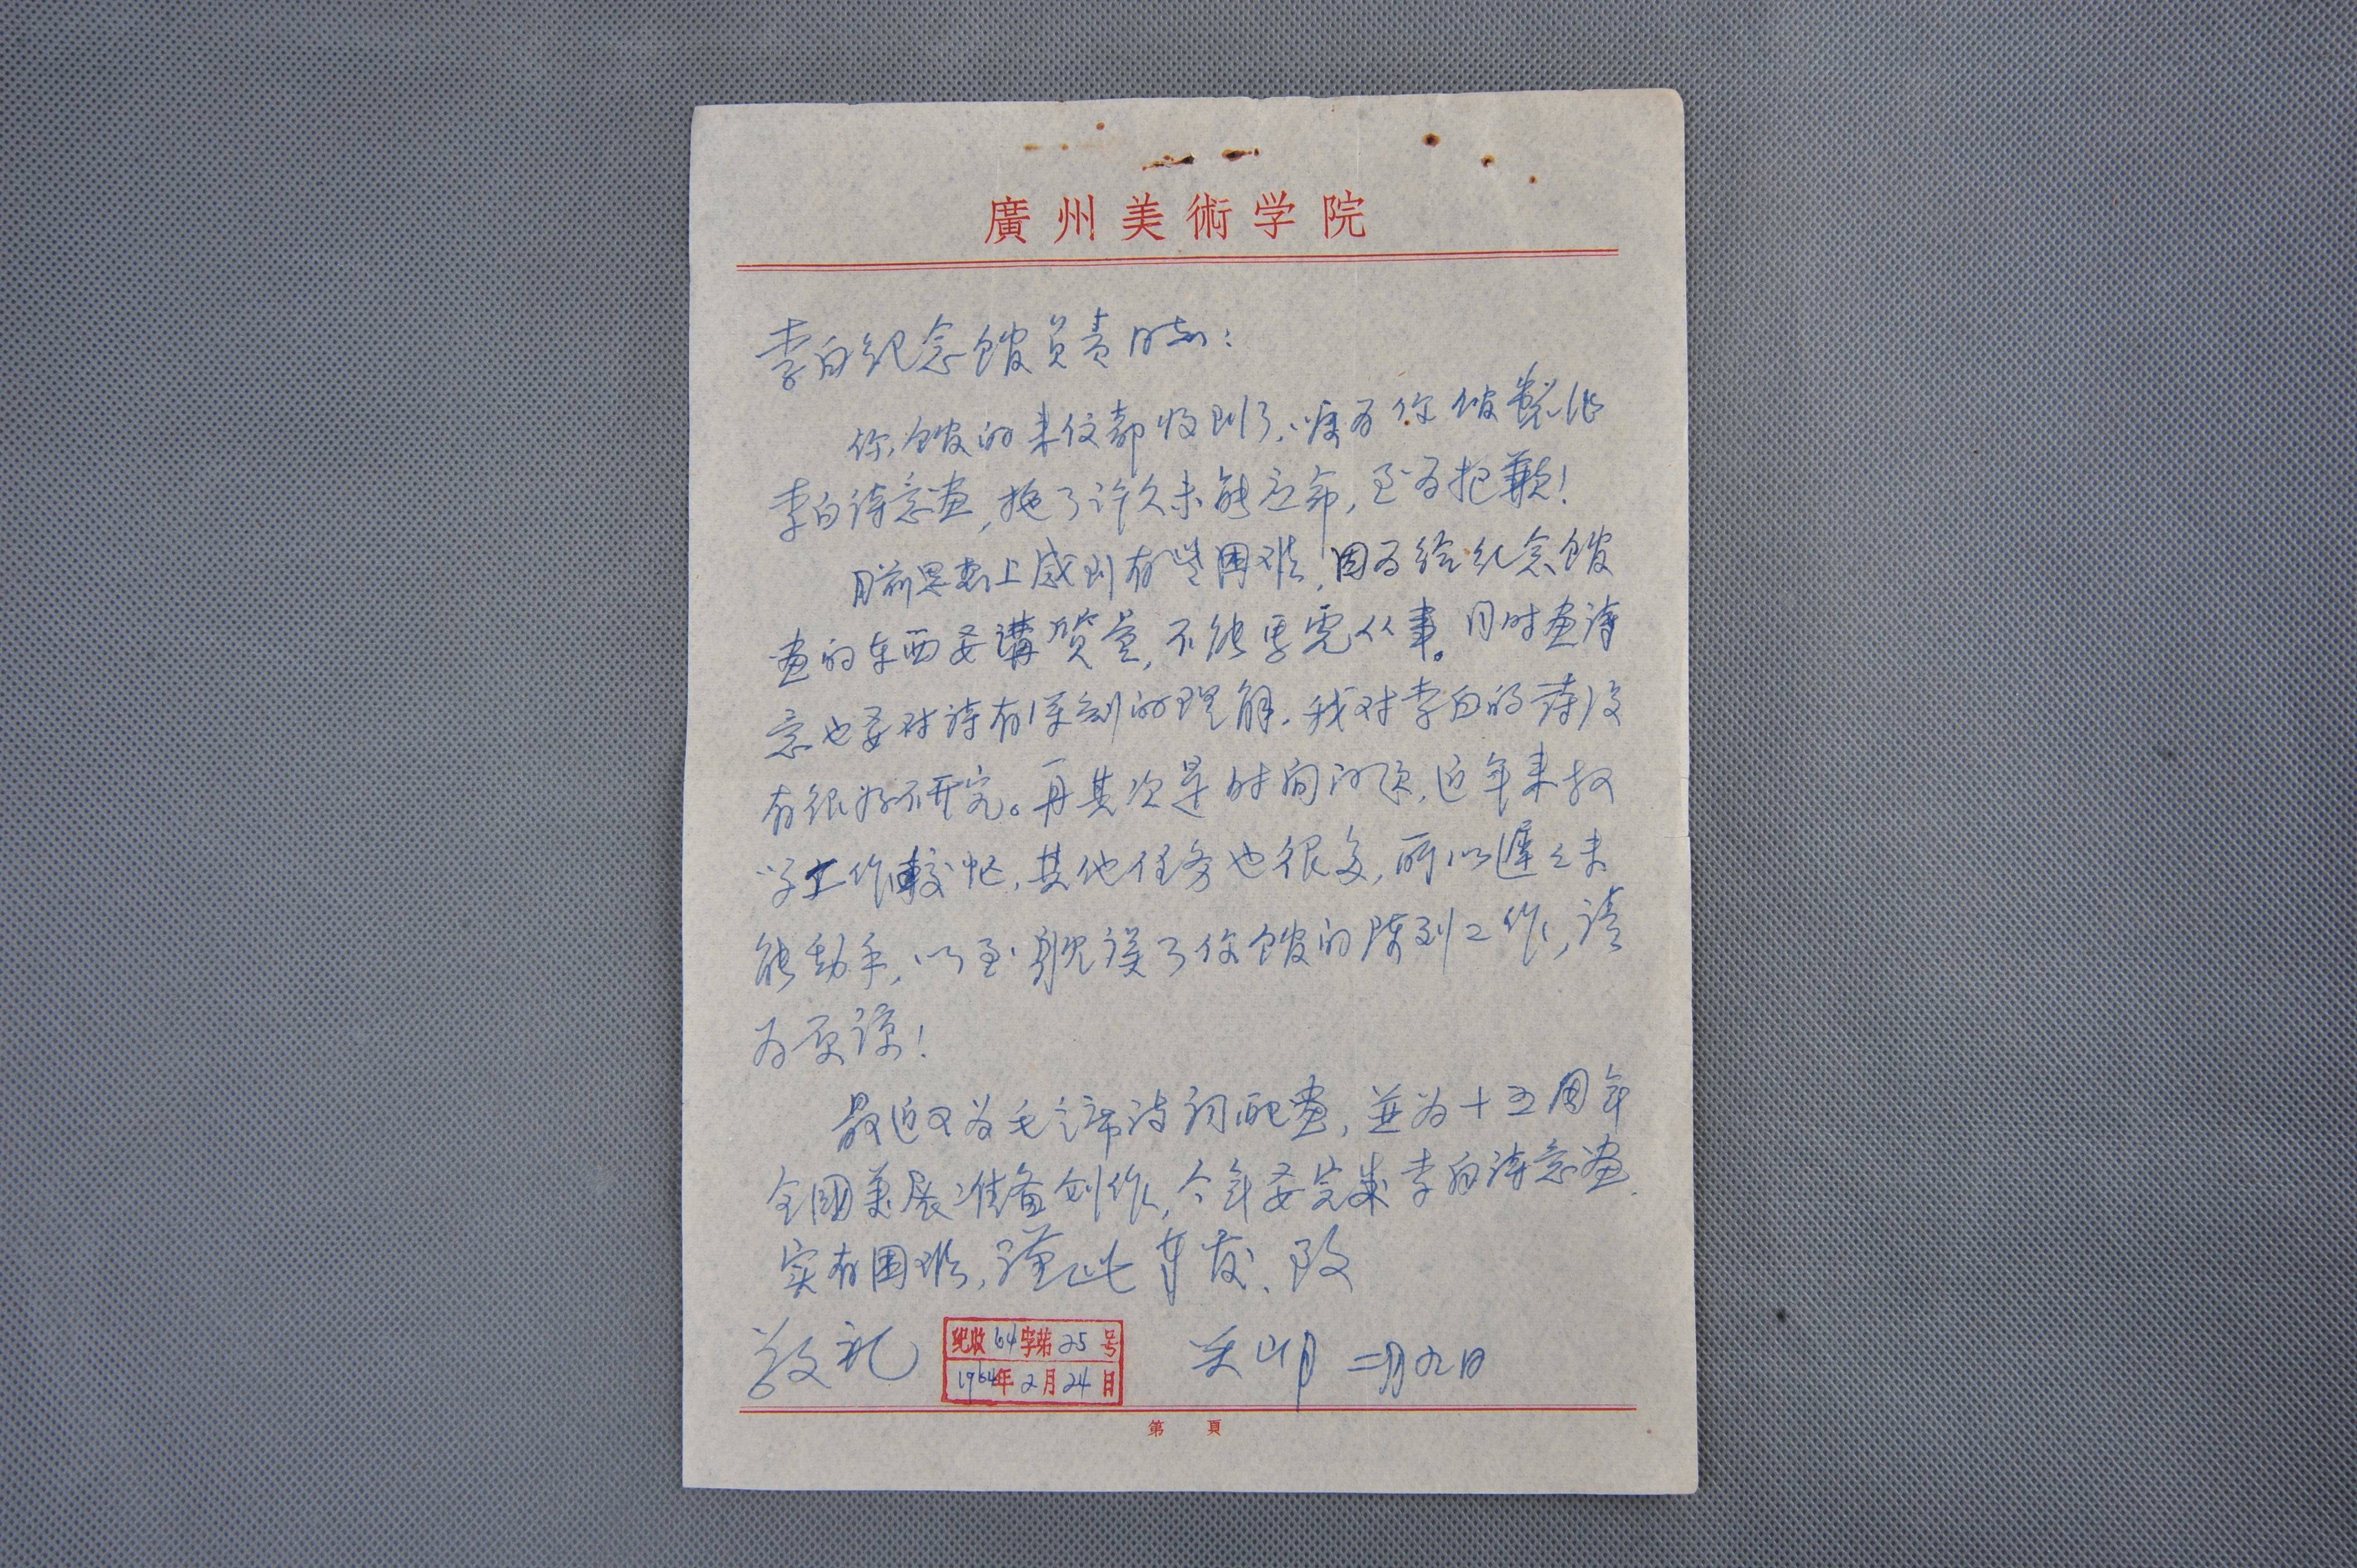 廣州美術学院
李白纪念馆负责同志：
你馆的来信都收到了，嘱为你馆製作
李白诗意画，拖了许久未能应命，至为抱歉！
目前思想上感到有些困难，因为给纪念馆
画的东西要講质量，不能马虎从事。同时画诗
意也要对诗有深刻的理解，我对李白的诗没
有很好研究。再其次是时间问题，近年来教
学工作較忙，其他任务也很多，所以遲々未
能動手，以至躭误了你馆的陈列工作，请
为原谅！
最近又为毛主席诗词配画，並为十五周年
全國美展准备创作，今年要完成李白诗意画
实有困难，谨此奉复、致
敬礼
关山月 二月九日
纪收64字第25号
1964年2月24日
第 頁